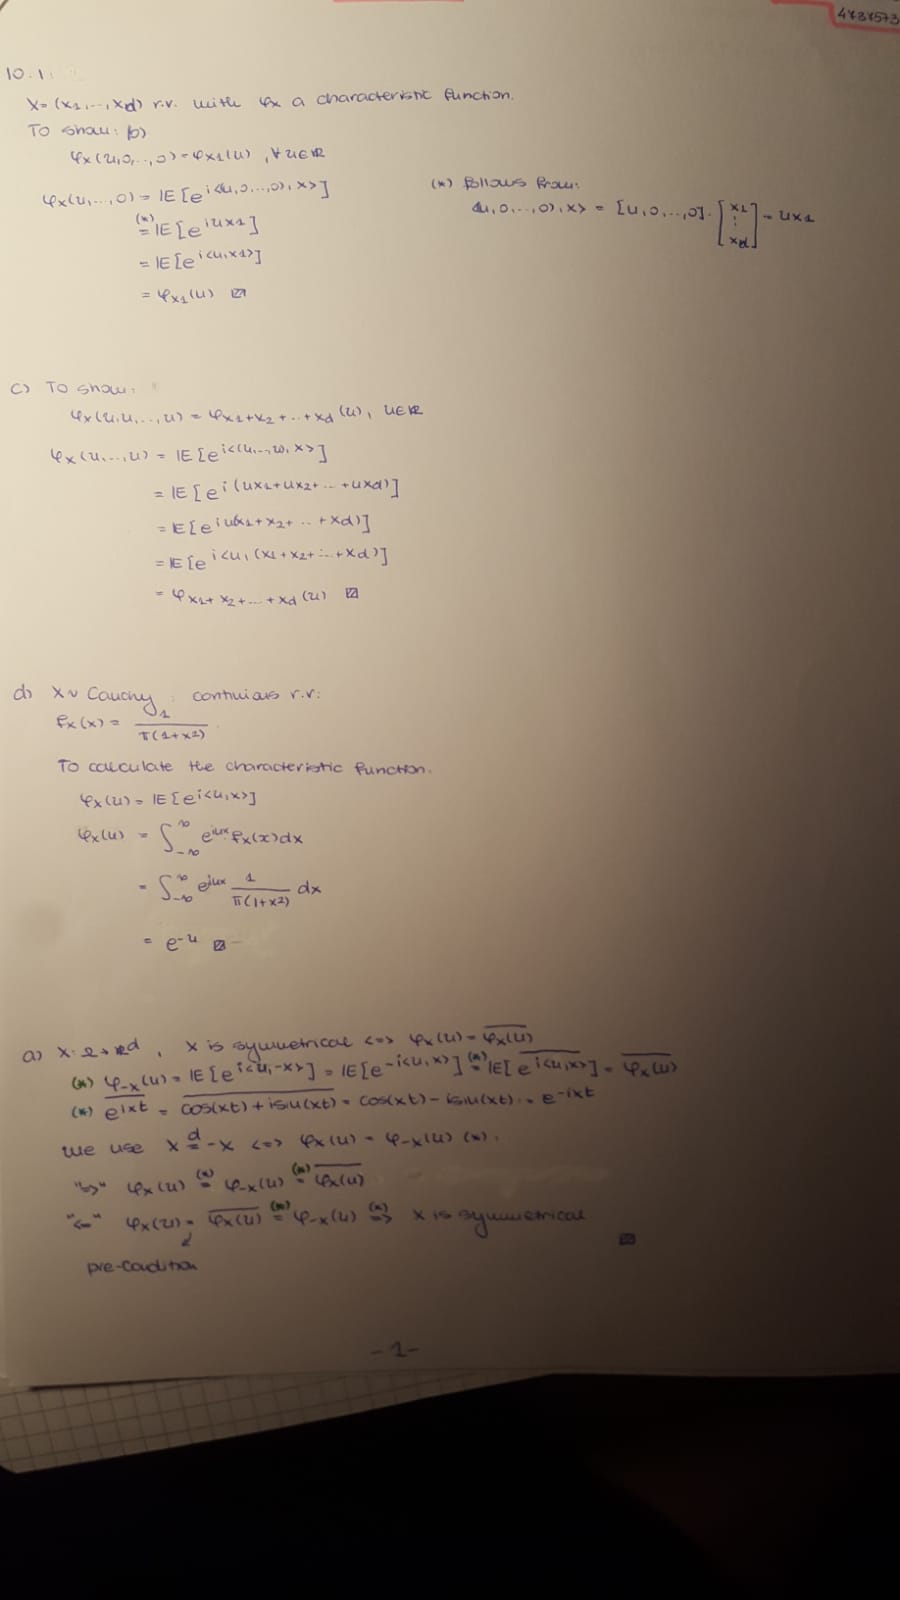 4787573
10.1:
X=(x1,...,xd) r.v. with φx a characteristic function.
To show: b)
φx(u,0,..,0)=φx1(u), ∀u∈ℝ
φx(u,...,0) = IE[e^i<(u,0,...,0),x>]
(*) follows from:
<(u,0,...,0),x> = [u,0,...,0]·[x1 ⋮ xd] = ux1
(*)= IE[e^iux1]
= IE[e^i<u,x1>]
= φx1(u) ☐
c) To show:
φx(u,u,...,u) = φx1+x2+..+xd (u), u∈ℝ
φx(u,...,u) = IE[e^i<(u,..,u),x>]
= IE[e^i(ux1+ux2+...+uxd)]
= IE[e^iu(x1+x2+..+xd)]
= IE[e^i<u,(x1+x2+...+xd)]
= φx1+x2+...+xd (u) ☐
d) X~Cauchy: continious r.v:
fx(x) = 1/π(1+x²)
To calculate the characteristic function.
φx(u) = IE[e^i<u,x>]
φx(u) = ∫_-∞^∞ e^iux fx(x)dx
= ∫_-∞^∞ e^iux 1/π(1+x²) dx
= e^-u ☐
a) X:Ω→ℝ^d, X is symmetrical <=> φx(u)=\overline{φx(u)}
(*) φ-x(u) = IE[e^i<u,-x>] = IE[e^-i<u,x>] (*)= IE[\overline{e^i<u,x>}] = \overline{φx(u)}
(*) \overline{e^ixt} = \overline{cos(xt)+isin(xt)} = cos(xt)-isin(xt) = e^-ixt
we use X d= -X <=> φx(u) = φ-x(u) (*).
"=>" φx(u) (*)= φ-x(u) (*)= \overline{φx(u)}
"<=" φx(u) = \overline{φx(u)} (*)= φ-x(u) (*)=> X is symmetrical
☐
pre-condition
-1-